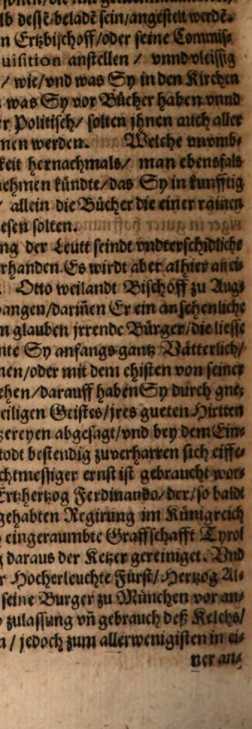 lb dest: beladẽ sein/angestelt werdẽ.
n Ertzbischoff/oder seine Commiss
uisition anstellen / vnnd vleissig
/ wie/vnd was Sy in den Kirchen
was Sy vor Bücher haben vnnd
r Politisch/ solten jhnen auch aller
nen werden. Welche vnomb-
keit hernachmals/ man ebenfals
nehmen kündte/das Sy in kunfftig
/ allein die Bücher die einer rainen
esen solten.
ng der Leutt seindt vndterschidliche
rhanden. Es wirdt aber alhier
Otto weilandt Bischoff zu Aug-
angen/dariñen Er ein an sehenliche
n glauben jrrende Bürger/die liesse
nte Sy anfangs gantz Vätterlich/
nen/oder mit dem ehisten von seiner
ehen/darauff haben Sy durch gne-
eiligen Geistes/jres gueten Hirtten
zereyen abgesagt/vnd bey dem Ein-
todt bestendig zuverharren sich eiffe-
chtmessiger ernst ist gebraucht wor-
Ertzhertzog Ferdinando/der/so baldt
gehabten Regirung im Künigreich
eingeraumbte Graffschafft Tyrol
daraus der Ketzer gereiniget. Vnd
r Hocherleuchte Fürst/Hertzog Al-
seine Burger zu München vor an-
zulassung vñ gebrauch deß Kelchs/
n / jedoch zum allerwenigisten in ei-
ner an-